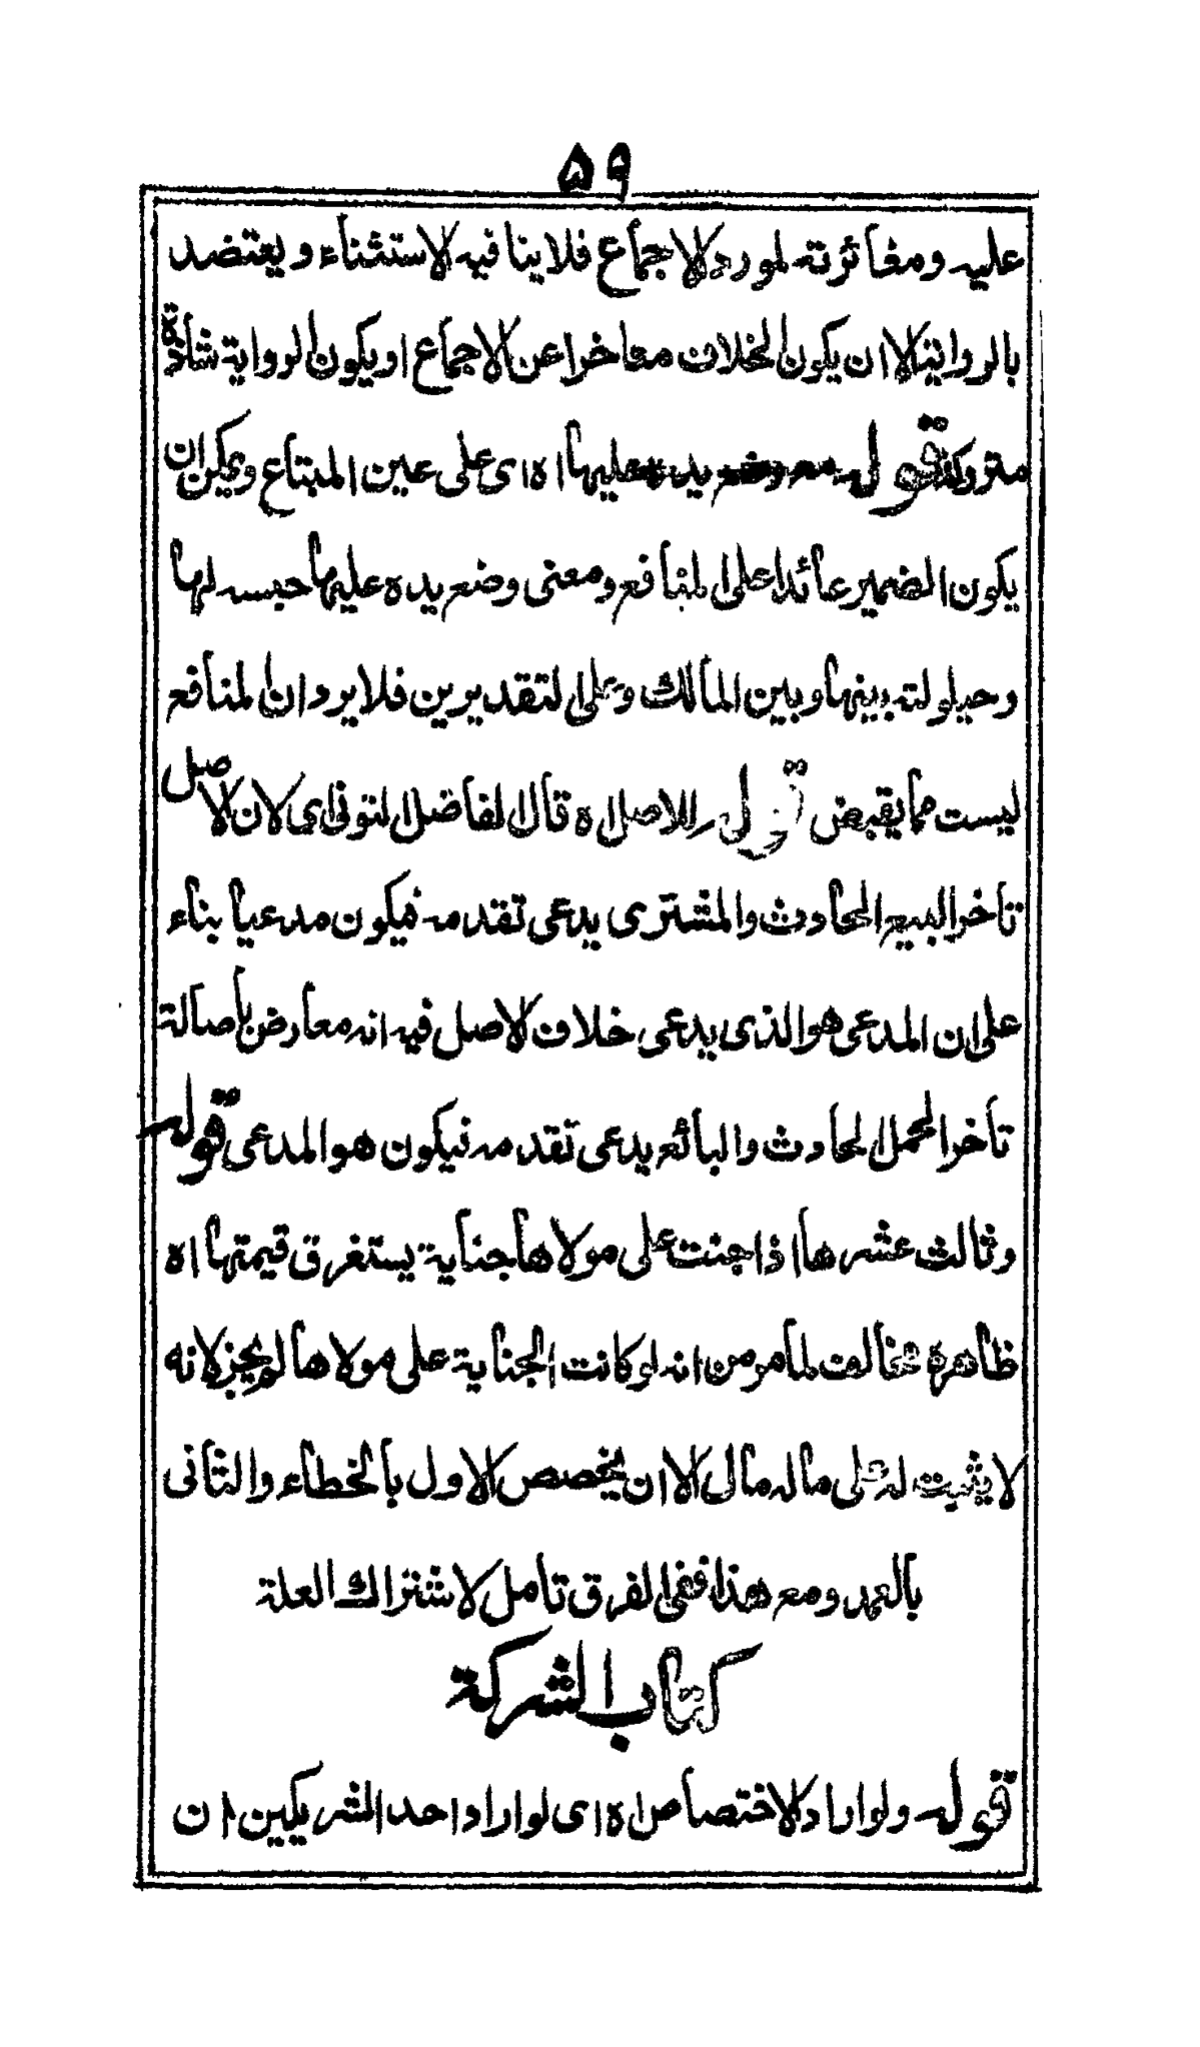 ۵۹
عليه ومغائرته لمورد الاجماع فلا ينافيه الاستثناء ويعتضد
بالرواية الا ان يكون الخلاف معاخرا عن الاجماع او يكون الرواية شاذة
متروكة قوله يده عليها اه اى على عين المبتاع ويمكن ان
يكون الضمير عائدا على المنافع ومعنى وضع يده عليها حبسه لها
وحيلولته بينها وبين المالك وعلى التقديرين فلا يرد ان المنافع
ليست مما يقبض قوله للاصل اه قال الفاضل التونى اى لان الاصل
تاخر البيع الحادث والمشترى يدعى تقدمه فيكون مدعيا بناء
على ان المدعى هو الذى يدعى خلاف الاصل فيه انه معارض باصالة
تاخر الحمل الحادث والبائع يدعى تقدمه فيكون هو المدعى قوله
وثالث عشرها اذا جنت على مولاها جناية يستغرق قيمتها اه
ظاهره مخالف لما مر من انه لو كانت الجناية على مولاها لم يجز لانه
لا يثبت له على ماله مال الا ان يخصص الاول بالخطاء والثانى
بالعمد ومع هذا ففى الفرق تامل لاشتراك العلة
كتاب الشركة
قوله ولو اراد الاختصاص اه اى لو اراد احد الشريكين ان